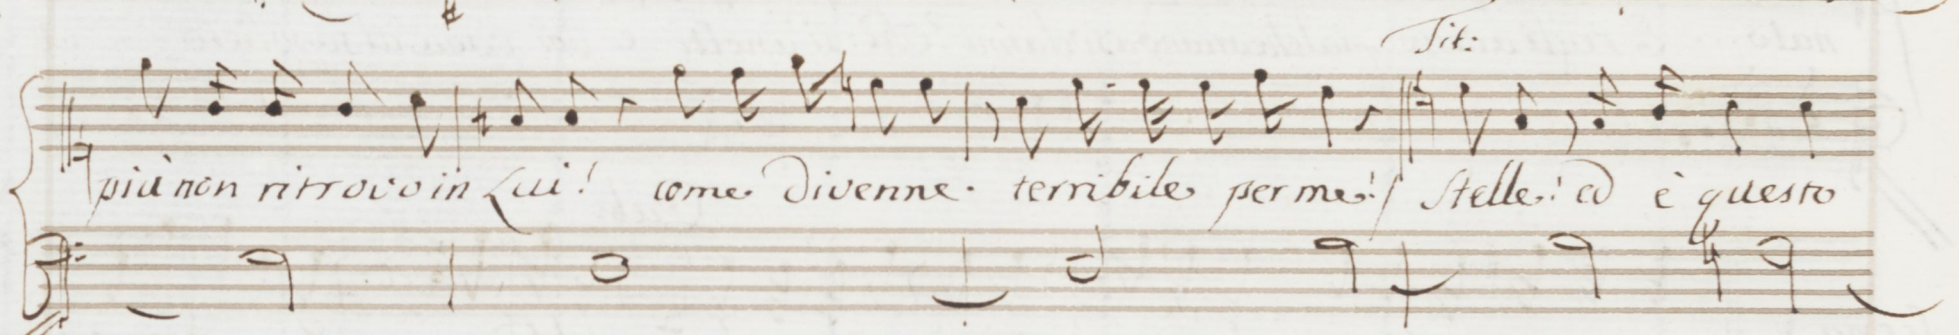 Tit:
più non ritrovo in Lui! come divenne terribile per me! Stelle! ed è questo